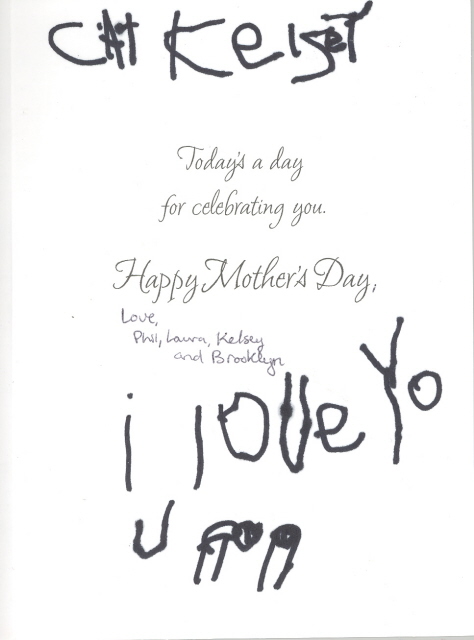 CAt
Today's a day
for celebrating you.
Happy Mother's Day,
Love,
Phil, Laura, Kelsey
and Brooklyn
i love Yo
U